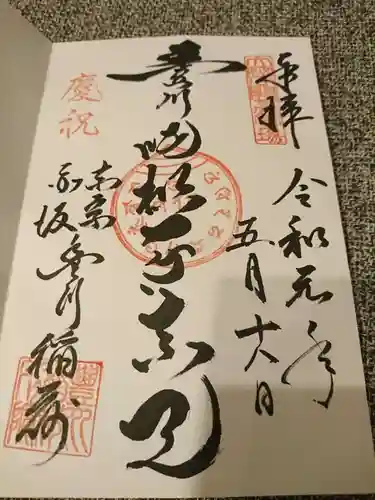 奉拝
令和元年
五月十六日
豊川吒枳尼真天
慶祝
東京
赤坂豊川稲荷